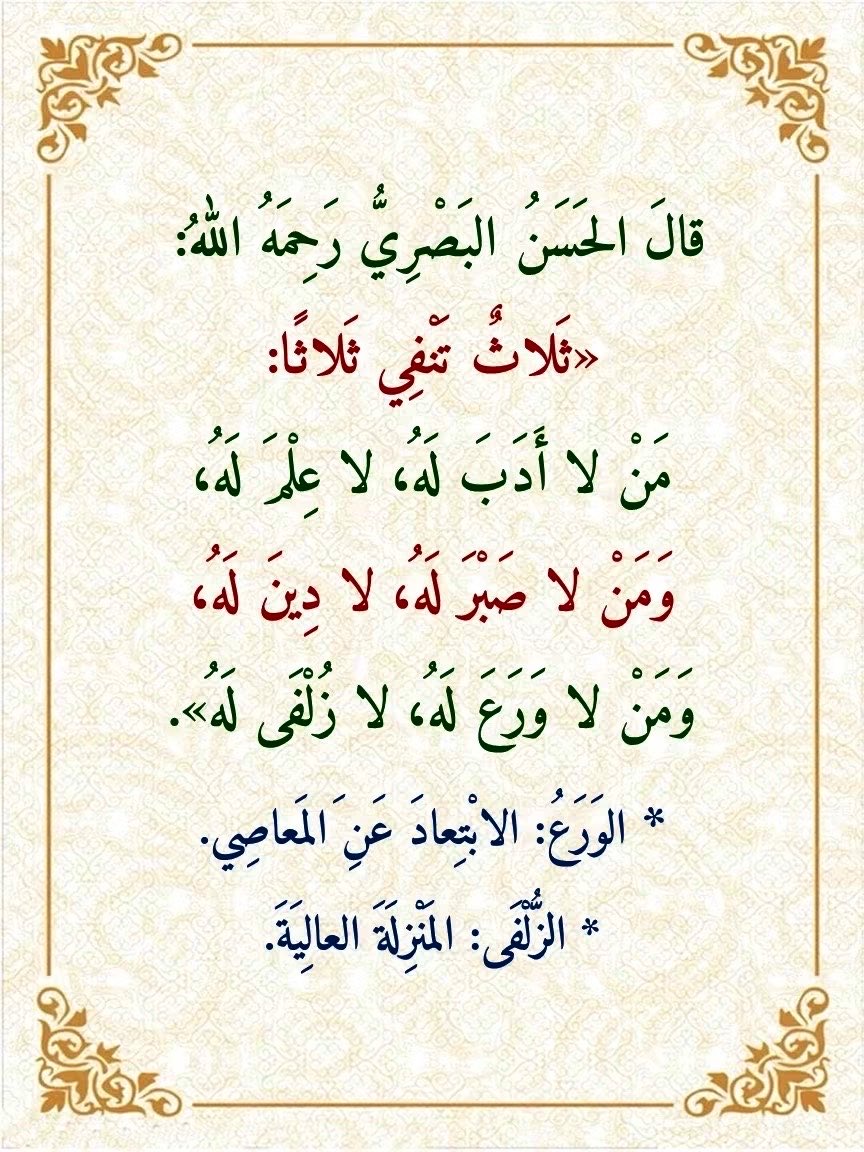 قالَ الحَسَنُ البَصْرِيُّ رَحِمَهُ اللهُ:
«ثَلاثٌ تَنْفِي ثَلاثًا:
مَنْ لا أَدَبَ لَهُ، لا عِلْمَ لَهُ،
وَمَنْ لا صَبْرَ لَهُ، لا دِينَ لَهُ،
وَمَنْ لا وَرَعَ لَهُ، لا زُلْفَى لَهُ».
* الوَرَعُ: الابْتِعادَ عَنِ َالمَعاصِي.
* الزُّلْفَى: المَنْزِلَةَ العالِيَةَ.